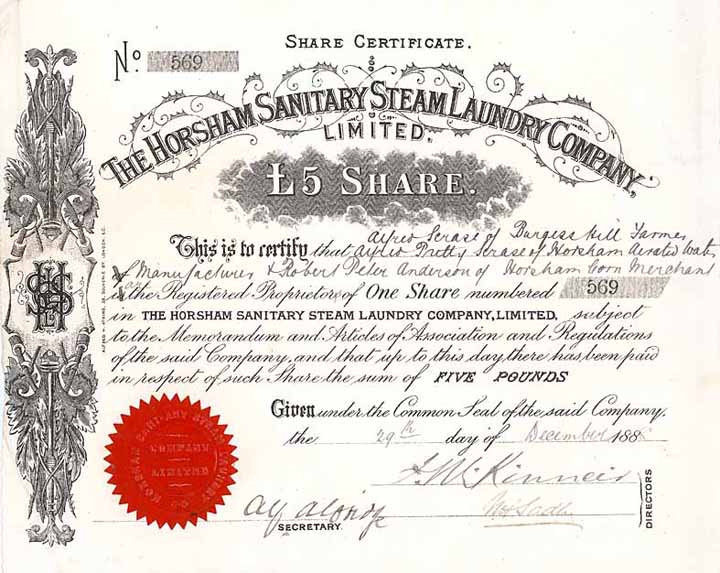 SHARE CERTIFICATE.
No. 569
THE HORSHAM SANITARY STEAM LAUNDRY COMPANY,
LIMITED.
£5 SHARE.
Alfred Scrase of Burgess Hill Farmer
This is to certify that Alfred Pretty Scrase of Horsham Aerated Water
Manufacturer & Robert Peter Anderson of Horsham Corn Merchant
the Registered Proprietors of One Share numbered 569
in THE HORSHAM SANITARY STEAM LAUNDRY COMPANY, LIMITED, subject
to the Memorandum and Articles of Association and Regulations
of the said Company, and that up to this day there has been paid
in respect of such Share the sum of FIVE POUNDS
Given under the Common Seal of the said Company,
the 29th day of December 188
HORSHAM SANITARY STEAM LAUNDRY
COMPANY
LIMITED
McKinneir
SECRETARY.
DIRECTORS